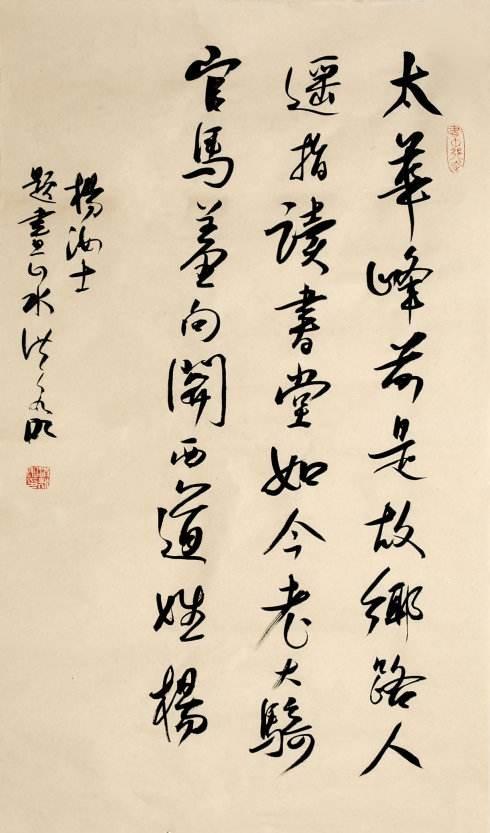 太華峰前是故鄉路人
遥指讀書堂如今老大騎
官馬羞向關西道姓楊
楊汝士
題畫山水